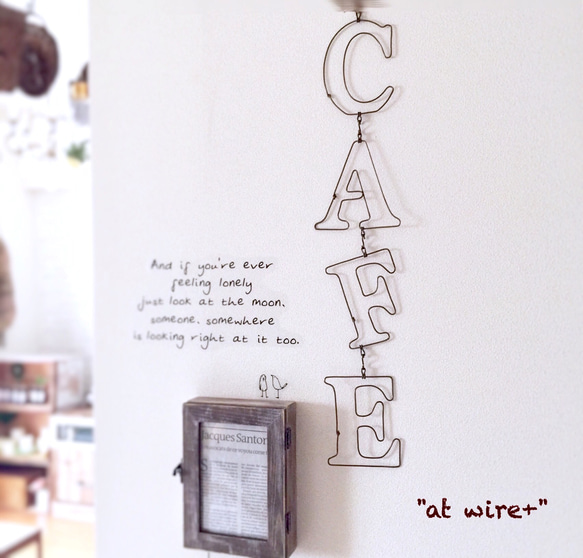 C
A
F
E
And if you're ever
feeling lonely
just look at the moon.
someone. somewhere
is looking right at it too.
acques Santor
"at wire+"